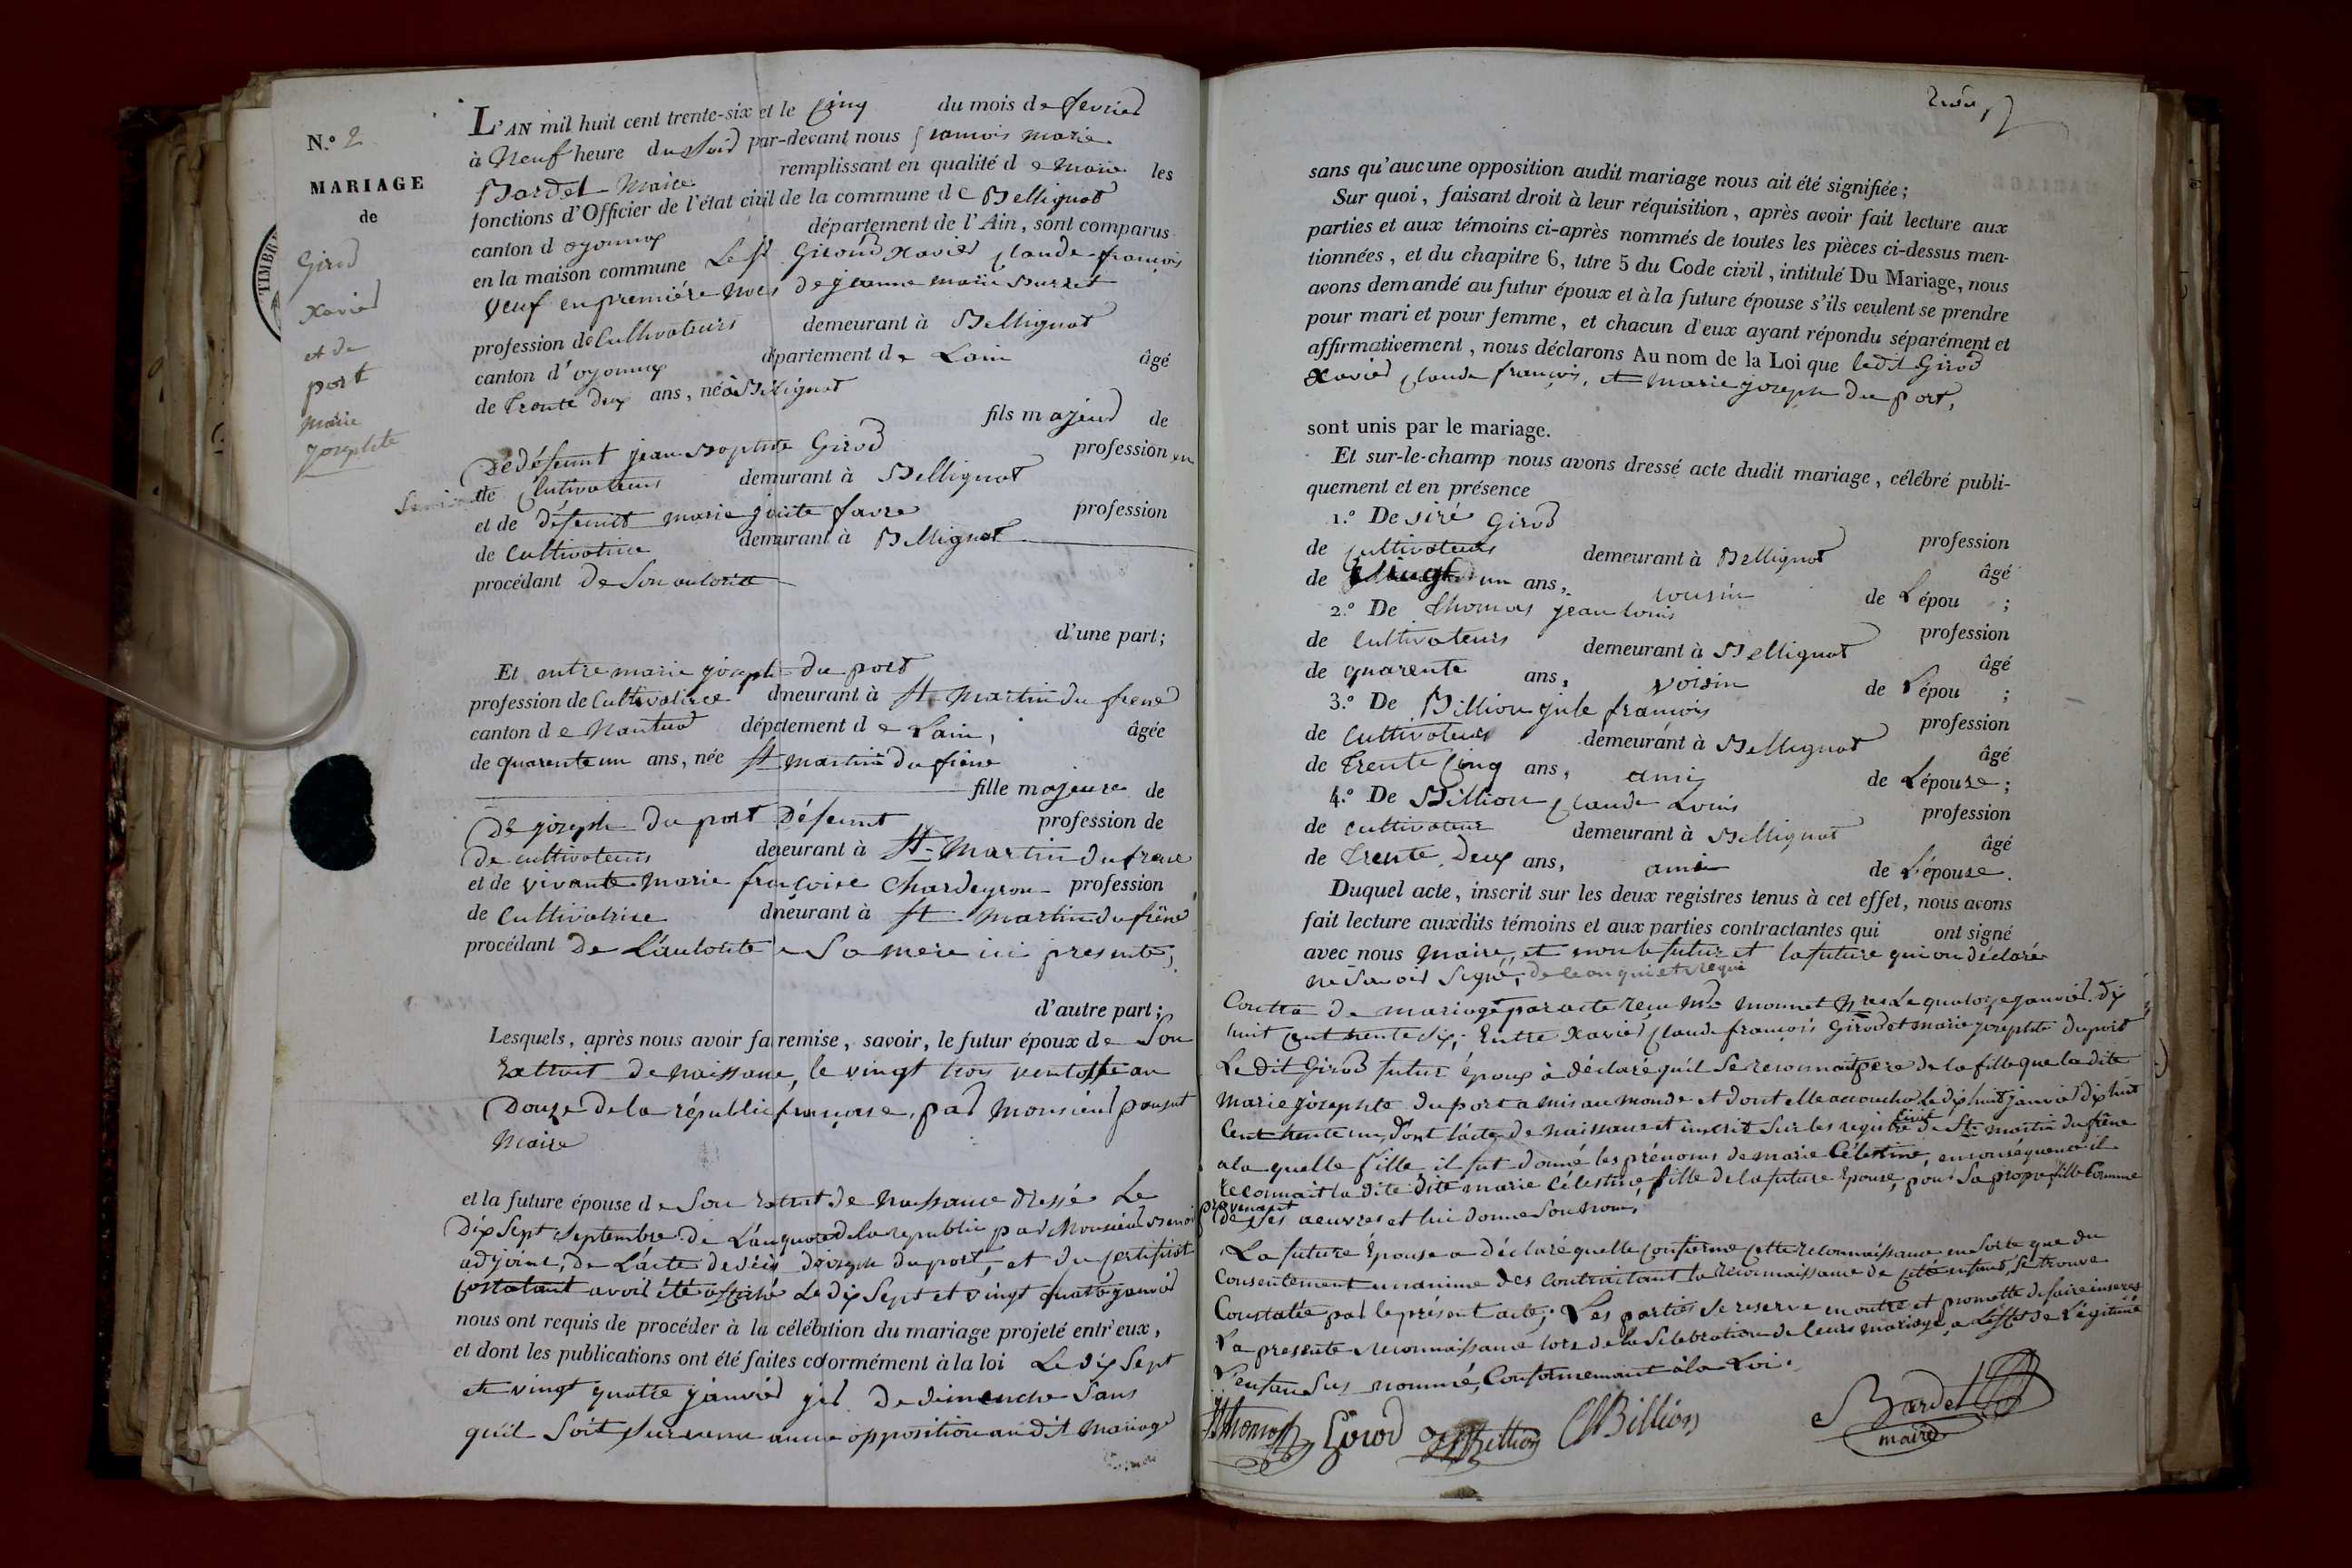 N.º 2
MARIAGE
de
Girod
Xavier
et de
port
marie
josephte
TIMBR
L'AN mil huit cent trente-six et le cinq du mois de fevrier
à Neuf heure du Soir par-devant nous francois marie
Bardet Maire remplissant en qualité de maire les
fonctions d'Officier de l'état civil de la commune de Bellignat
canton d oyonnax département de l'Ain, sont comparus
en la maison commune Le Sr Giroud Xavier claude françois
Veuf en premiére noces de jeanne marie
profession de Cultivateurs demeurant à Bellignat
canton d'oyonnax département de Lain âgé
de trente deux ans, né à Bellignat
fils majeur de
De défeunt jean Baptiste Girod profession
de Cultivateurs demurant à Bellignat
et de défeunte marie favre profession
de Cultivatrice demurant à Bellignat
procédant de Son autorité
d'une part;
Et entre marie joseph du port
profession de Cultivatrice demeurant à St martin du frene
canton de Nantua département de Lain, âgée
de quarente un ans, née St martin du frene
fille majeure de
De joseph du port Défeunt profession de
De cultivateurs demeurant à St Martin du frene
et de vivante marie françoise Chardeyron profession
de Cultivatrice demeurant à St Martin du frêne
procédant De L'autorité de Sa mere ici presente,
d'autre part;
Lesquels, après nous avoir fait remise, savoir, le futur époux de Son
Extrait de naissance, le vingt trois ventosse an
Douze de la république françoise, par Monsieur
Maire
et la future épouse de Son Extrait de naissance dressé Le
Dix Sept Septembre de L'an quatre de la republic par Monsieur
adjoint, De L'acte de décès de joseph du port, et du certificat
constatant avoir été affiché Le dix Sept et vingt quatre janvier
nous ont requis de procéder à la célébration du mariage projeté entr'eux,
et dont les publications ont été faites conformément à la loi Le dix Sept
et vingt quatre janvier de dimenche Sans
qu'il Soit Survenu aucune opposition au dit mariage
sans qu'aucune opposition audit mariage nous ait été signifiée;
Sur quoi, faisant droit à leur réquisition, après avoir fait lecture aux
parties et aux témoins ci-après nommés de toutes les pièces ci-dessus men-
tionnées, et du chapitre 6, titre 5 du Code civil, intitulé Du Mariage, nous
avons demandé au futur époux et à la future épouse s'ils veulent se prendre
pour mari et pour femme, et chacun d'eux ayant répondu séparément et
affirmativement, nous déclarons Au nom de la Loi que ledit Girod
Xavier claude françois, et marie joseph du port,
sont unis par le mariage.
Et sur-le-champ nous avons dressé acte dudit mariage, célébré publi-
quement et en présence
1.º De siré Girod profession
de cultivateurs demeurant à Bellignat âgé
de vingt un ans, cousin de Lépou ;
2.º De thomas jean louis profession
de Cultivateurs demeurant à Bellignat âgé
de quarente ans, voisin de Lépou ;
3.º De Billion jule francois profession
de Cultivateurs demeurant à Bellignat âgé
de trente Cinq ans, ami de Lépouse;
4.º De Billion claude Louis profession
de cultivateur demeurant à Bellignat âgé
de trente Deux ans, ami de L'épouse.
Duquel acte, inscrit sur les deux registres tenus à cet effet, nous avons
fait lecture auxdits témoins et aux parties contractantes qui ont signé
avec nous Maire, et non le futur et la future qui on déclaré
ne Savoir Signé, de ce
de mariage par acte recu Me monnet Nre Le quatorze janvier dix
huit cent trente six; Entre Xavier claude françois Girod et marie josephte duport
Le dit Girod futur époux à déclaré qu'il Se reconnait pere de la fille que la dite
marie josephte duport a mis au monde et dont elle accoucha le dix huit janvier dix huit
Cent trente un, dont l'acte de naissance est inscrit Sur les registre civil de St martin du frêne
a la quelle fille il fut donné les prénoms de marie Célestine, en conséquence il
reconnait la dite dite marie Célestine, fille de la future épouse, pour Sa propre fille Comme
provenant de Ses oeuvres et lui donne Son nom,
La future Epouse a déclaré quelle confirme cette reconnaissance en Sorte que du
Consentement unanime des Contractant la reconnaissance de cette enfant, Se trouve
Constatée par le présent acte; Les parties Se reserve en outre et promette de faire inserer
La presente reconnaissance lors de la Celebration de leurs mariage, a L'effet de Légitimé
L'enfan Sus nommé, Conformement à la Loi.
Thomas Girod Billion CL Billion
Bardet
maire